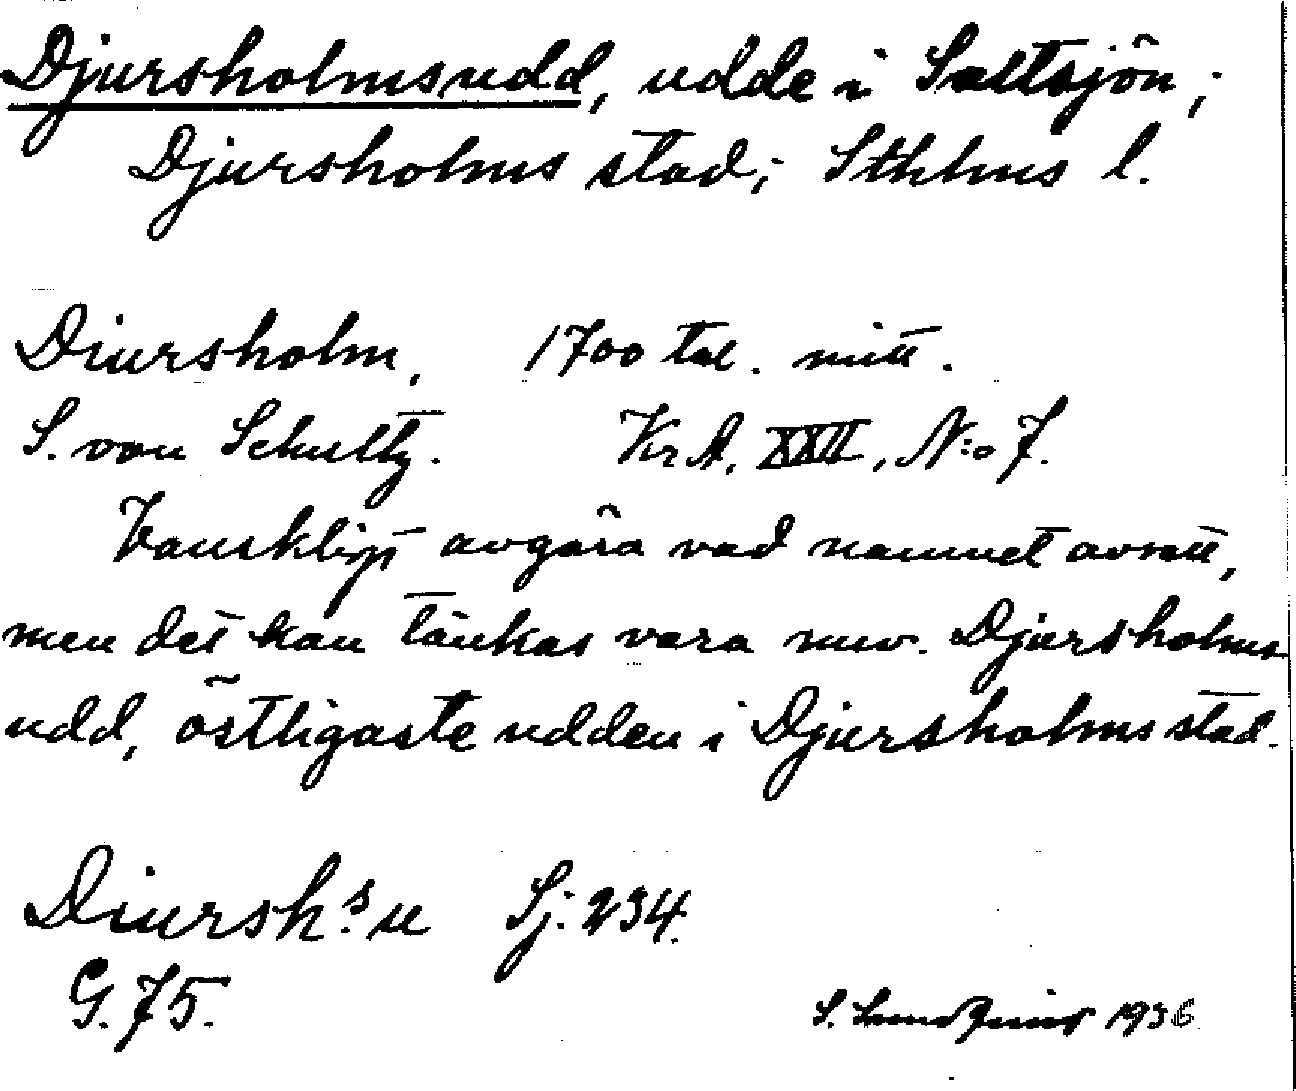 Djursholmsudd, udde i Saltsjön;
Djursholms stad; Sthlms l.
Diursholm, 1700 tal. mitt.
S. von Schultz. Kr A. XXII, N:o 7.
Vanskligt avgöra vad namnet avsett,
men det kan tänkas vara nuv. Djursholms
udd, östligaste udden i Djursholms stad.
Diursh:s u Sj: 234.
G. 75.
S. Lundquist 1936